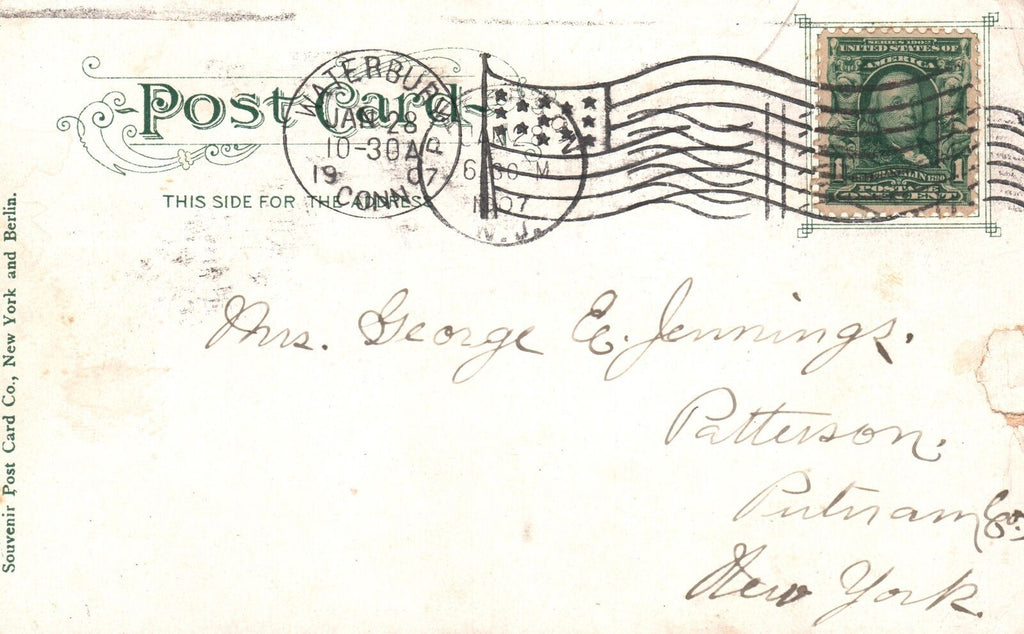 Post Card
THIS SIDE FOR THE ADDRESS
WATERBURY
JAN 28
10-30A
1907
CONN.
JAN 28
6-30 M
1907
N.J.
SERIES 1902
UNITED STATES OF
AMERICA
1 1
FRANKLIN
POSTAGE
ONE CENT
Mrs. George E. Jennings.
Patterson.
Putnam Co.
New York.
Souvenir Post Card Co., New York and Berlin.